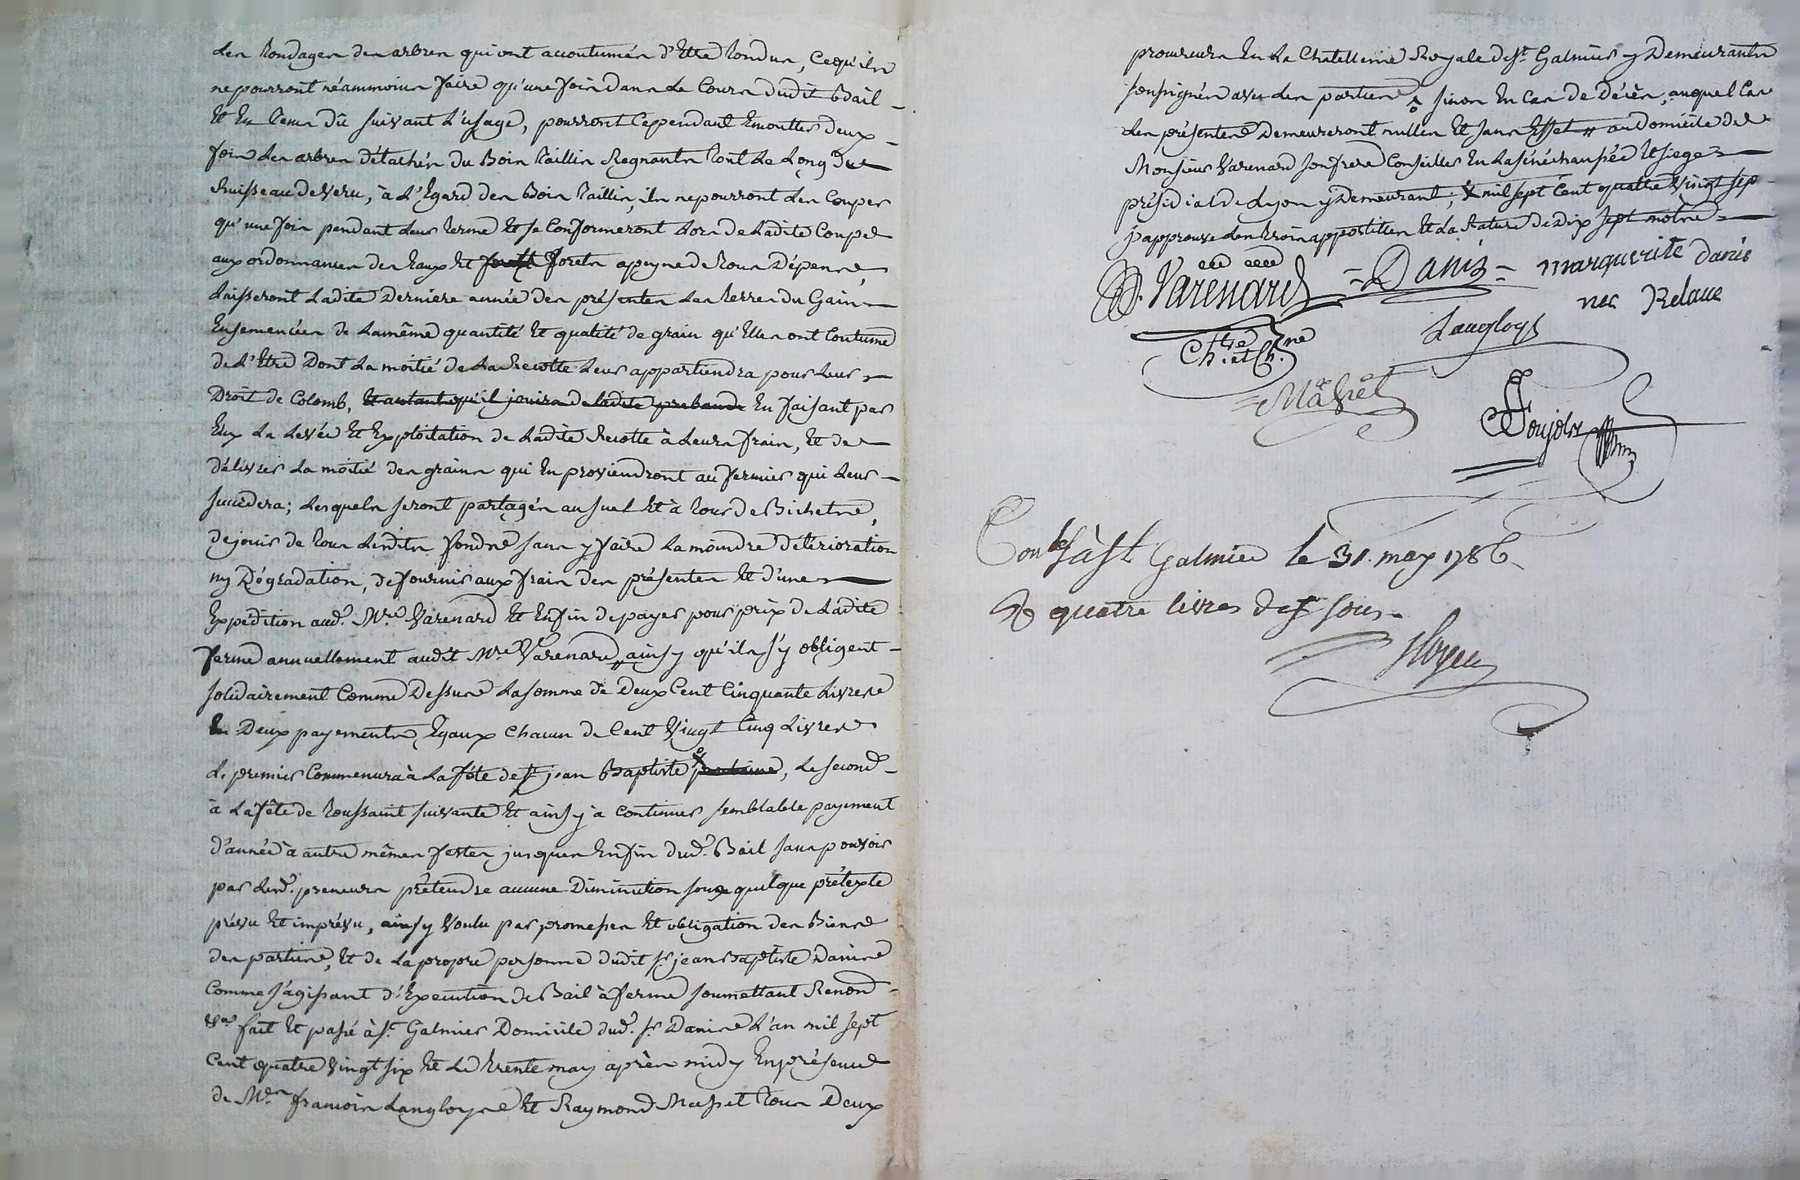 des tondages des arbres qui ont accoutumés d'Etre tondus, Cequ'ils
ne pourront néammoins faire qu'une fois dans Le Cours dudit Bail
Et En tems dû suivant L'usage, pourront Cependant Emoutter deux
fois Les arbres détachés du Bois taillis Regnants tout Le Long du
Ruisseau de Veru, à L'Egard des Bois taillis, ils ne pourront Les Couper
qu'une fois pendant Leur terme Et se Conformeront Lors de Ladite Coupe
aux ordonnances des Eaux Et forets a peyne de tous Dépens,
Laisseront Ladite Derniere année des présentes Les terres du Gain
Ensemencées de Lamême quantité Et qualité de grain qu'Elles ont Coutume
de L'Etre Dont La moitié de La Recotte Leur appartiendra pour Leur
Droit de Colomb, Et autant qu'il jouira de ladite prebande En faisant par
Eux La Levée Et Exploitation de Ladite Recotte à Leurs frais, Et de
délivrer La moitié des grains qui En proviendront au fermier qui Leur
succèdera; Lesquels seront partagés au suel Et à tour de Bichets,
de jouir de tous Lesdits fonds sans y faire La moindre déterioration
ny Dégradation, de fournir aux frais des présentes Et d'une
Expédition aud. Mre Varenard Et Enfin de payer pour prix de Ladite
ferme annuellement audit Mre Varenard, ainsy qu'ils s'y obligent
solidairement Comme Dessus La somme de Deux Cent Cinquante Livres
En Deux payements Egaux Chacun de Cent Vingt Cinq Livres
Le premier Commencera à La fête de St jean Baptiste prochaine, Le second
à La fête de toussaint suivante Et ainsy à continuer semblable payement
d'année à autre mêmes festes jusques Enfin dud. Bail sans pouvoir
par Lesd. preneurs prétendre aucune Diminution sous quelque prétexte
prévu Et imprévu, ainsy Voulu par promesses Et obligation des Biens
des parties, Et de La propre personne dudit Sr jean Baptiste Danis
Comme s'agissant d'Execution de Bail à ferme soumettant Renond
Vas fait Et passé à St Galmier Domicile dud. Sr Danis L'an mil sept
Cent quatre Vingt six Et Le trente may après midy En présence
de Mes francois Langloys Et Raymond Masset tous Deux
procureurs En La Chatellenie Royale de St Galmier y Demeurants
soussignés avec Les parties, sinon En Cas de Décès, auquel Cas
Les présentes Demeureront nulles Et sans Effet, au Domicile de
Monsieur Varenard son frere Conseiller En La sénéchaussée Et siege
présidial de Lyon y Demeurant, mil sept Cent quatre Vingt sep
j'approuve Les trois appostilles Et La Rature de Dix sept mots
Varenard Danis marguerite danis
nee Relave
Ch. et Ch. ne Langloys
Massét
Poujols
Conlé à St Galmier le 31. may 1786
R quatre livres dix sous